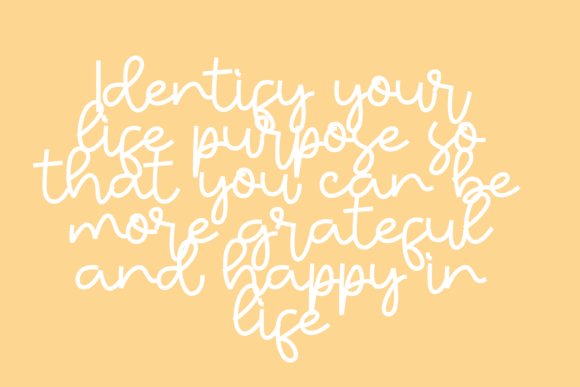 Identify your
life purpose so
that you can be
more grateful
and happy in
life